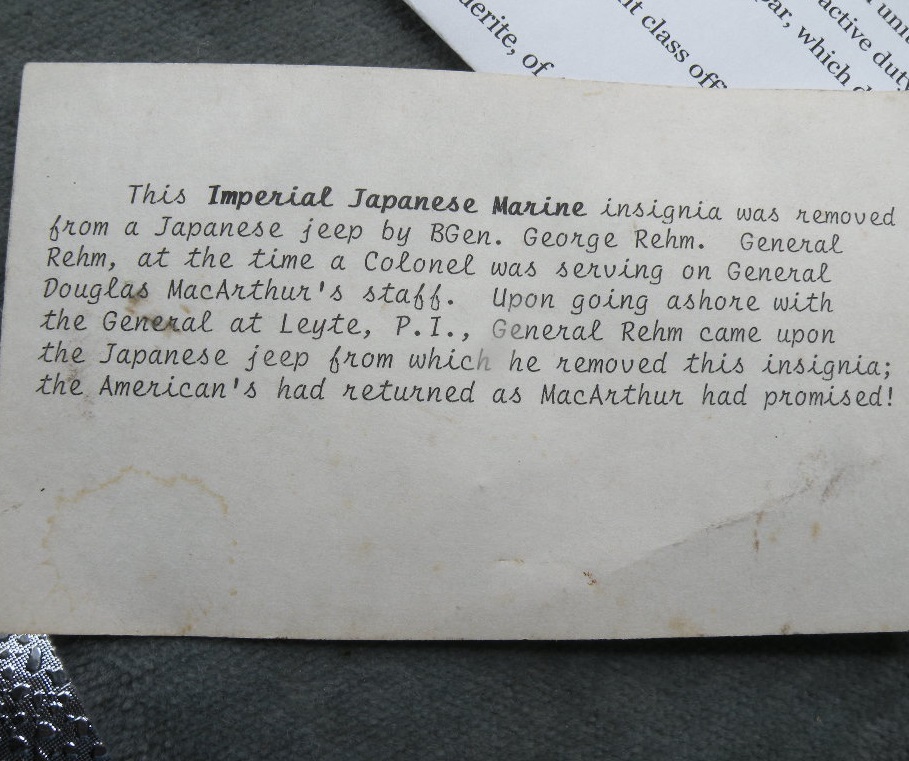 derite, of
nt class offi
par, which d
active duty
unit
This Imperial Japanese Marine insignia was removed
from a Japanese jeep by BGen. George Rehm. General
Rehm, at the time a Colonel was serving on General
Douglas MacArthur's staff. Upon going ashore with
the General at Leyte, P.I., General Rehm came upon
the Japanese jeep from which he removed this insignia;
the American's had returned as MacArthur had promised!